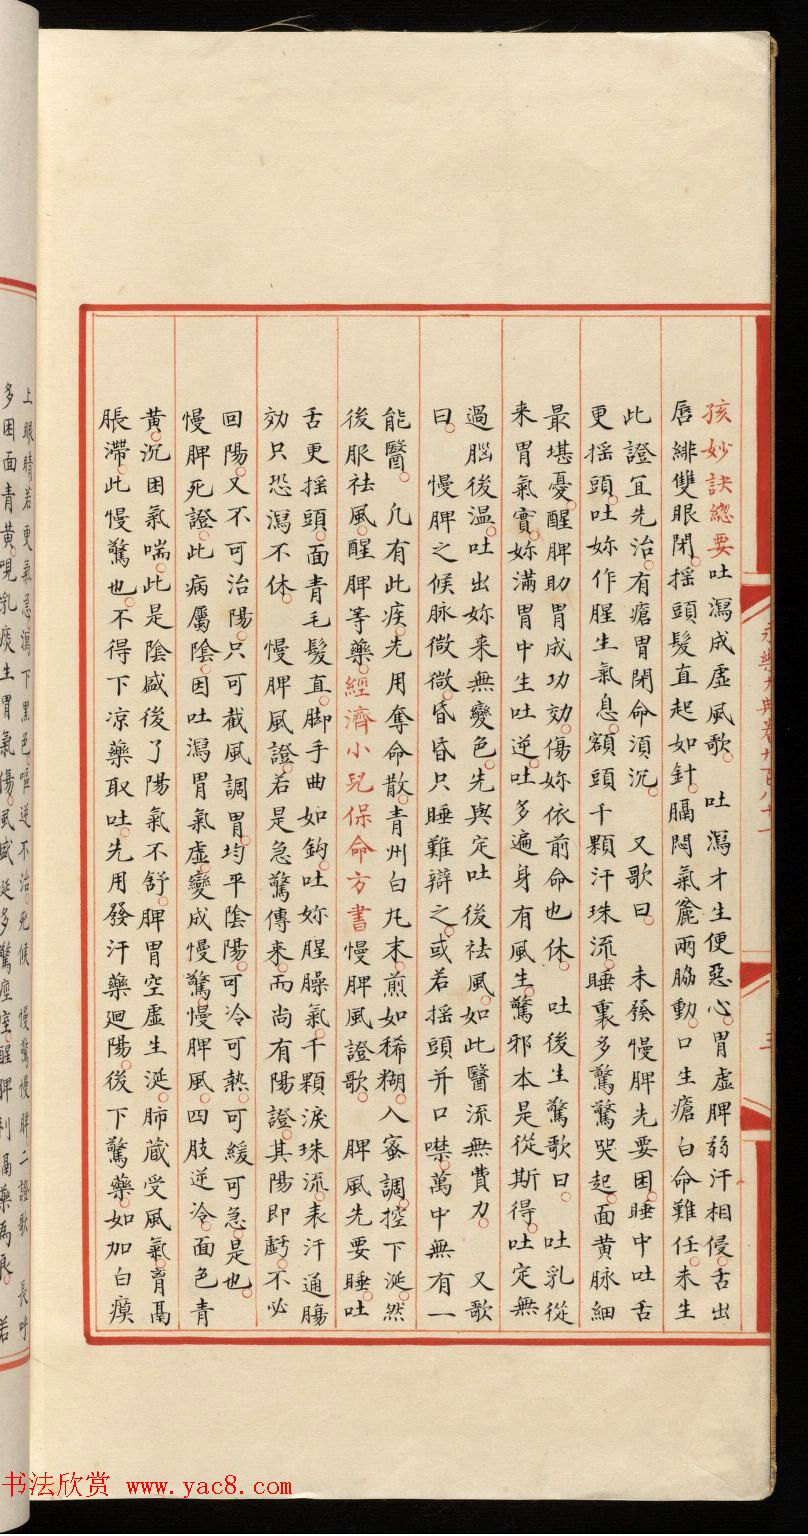 永樂大典卷九百八十一
三
孩妙訣總要吐瀉成虛風歌。吐瀉才生便惡心。胃虛脾弱汗相侵。舌出
唇緋雙眼閉。摇頭髮直起如針。膈悶氣麄兩脇動。口生瘡白命難任。未生
此證宜先治。有瘡胃閉命湏沉。又歌曰。未發慢脾先要困。睡中吐舌
更揺頭。吐妳作腥生氣息。額頭千顆汗珠流。睡裏多驚驚哭起。面黄脉細
最堪憂。醒脾助胃成功効。傷妳依前命也休。吐後生驚歌曰。吐乳從
来胃氣實。妳滿胃中生吐逆。吐多遍身有風生。驚邪本是從斯得。吐定無
過腦後温。吐出妳来無變色。先與定吐後祛風。如此醫流無費力。又歌
曰。慢脾之候脉微微。昏昏只睡難辯之。或若摇頭并口噤。萬中無有一
能醫。凡有此疾。先用奪命散。青州白丸末。煎如稀糊。入蜜調。控下涎。然
後服祛風。醒脾等藥。經濟小兒保命方書慢脾風證歌。脾風先要睡。吐
舌更揺頭。面青毛髮直。脚手曲如鈎。吐妳腥臊氣。千顆淚珠流。表汗通腸
効只恐瀉不休。慢脾風證。若是急驚傳来。而尚有陽證。其陽即虧。不必
回陽。又不可治陽。只可截風調胃。均平陰陽。可冷可熱。可緩可急。是也。
慢脾死證。此病屬陰。因吐瀉胃氣虛。變成慢驚慢脾風。四肢逆冷。面色青
黄。沉困氣喘。此是陰盛後了陽氣不舒。脾胃空虛生涎。肺蔵受風氣。胷鬲
脹滯。此慢驚也。不得下凉藥取吐。先用發汗藥廻陽。後下驚藥。如加白瘼
上眼睛若更氣急。瀉下黑色。嘔逆不治。死候 慢驚慢脾二證歌 長呼
多困面青黄。哯乳痰生胃氣傷。風盛涎多驚壅室。醒脾利膈藥爲良。若
书法欣赏 www.yac8.com